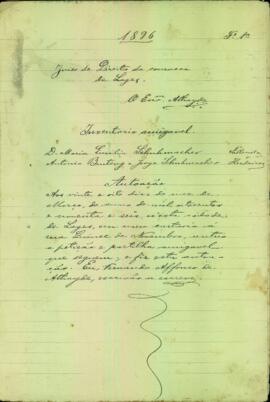 1896
Juizo de Direito da comarca
de Lages.
O Esc. Athayde
Inventario amigavel
D. Maria Schuhmacher
Antonio Jorge Schuhmacher
Autoação
Aos vinte e oito dias do mez de
Março, do anno de mil oitocentos
e noventa e seis, n'esta cidade
de Lages, em meu cartorio á
rua Quinze de Novembro, autúo
a petição e partilha amigavel
que seguem; e fiz esta autoa-
ção. Eu, Fernando Affonso de
Athayde, escrivão o escrevi.